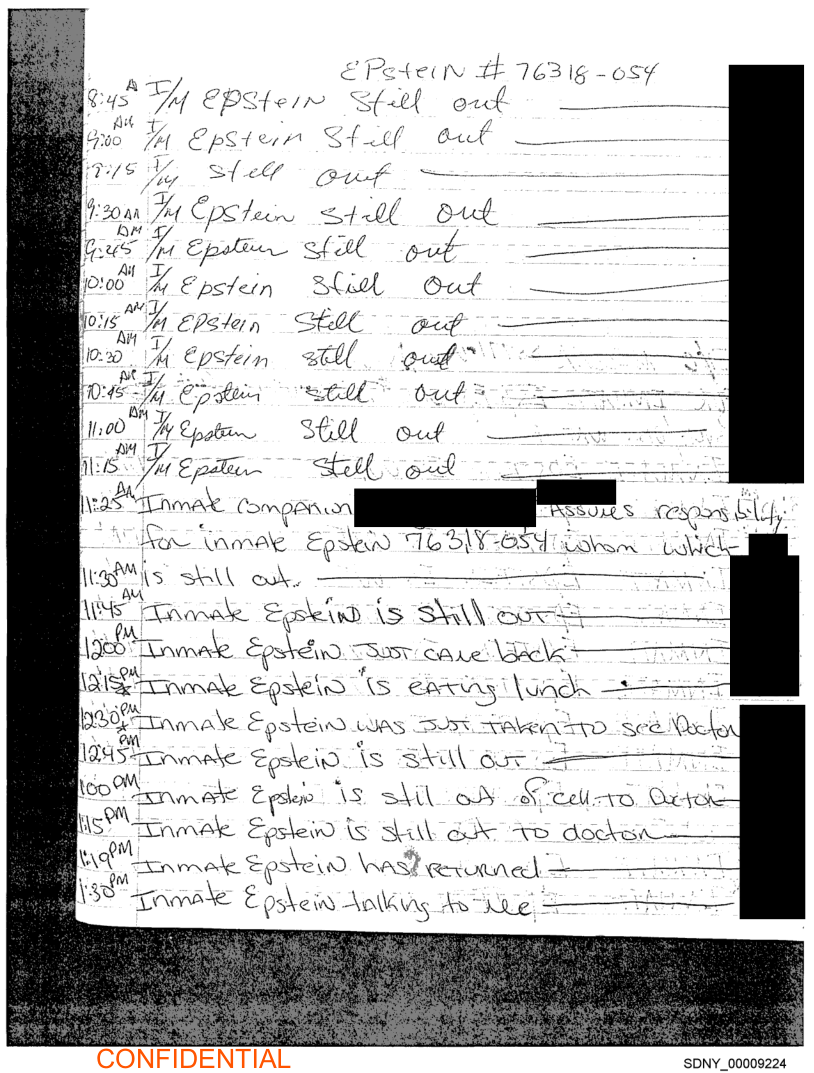 EPstein # 76318-054
8:45 A I/M EPStein Still out
9:00 AM I/M Epstein Still out
9:15 I/M still out
9:30 AM I/M Epstein Still out
9:45 AM I/M Epstein still out
10:00 AM I/M Epstein Still out
10:15 AM I/M EPstein Still out
10:30 AM I/M Epstein still out
10:45 AM I/M Epstein still out
11:00 AM I/M Epstein Still out
11:15 AM I/M Epstein Still out
11:25 AM Inmate companion Assumes responsibility
for inmate Epstein 76318-054 whom which
11:30 AM is still out.
11:45 AM Inmate Epstein is still out
12:00 PM Inmate Epstein JUST came back
12:15 PM * Inmate Epstein is eating lunch
12:30 PM * Inmate Epstein was JUST taken to see Doctor
12:45 PM Inmate Epstein is still out
1:00 PM Inmate Epstein is still out of cell to Doctor
1:15 PM Inmate Epstein is still out to doctor
1:19 PM Inmate Epstein has returned
1:30 PM Inmate Epstein talking to me
CONFIDENTIAL
SDNY_00009224